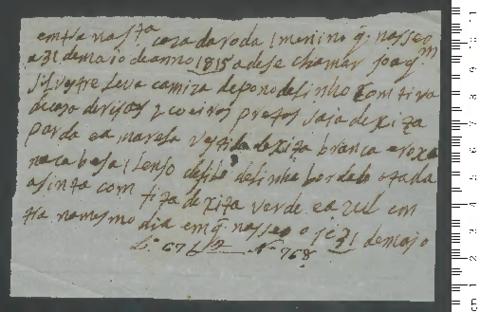 entra nasta caza da roda 1 menino q. nasseo
a 31 de maio deanno 1815 adese chamar joaq^m
silvestre leva camiza depano de linho com tira
de caza de riscas 2 coeiros pretos saia de xita
parda ea marela vestido de xita branca e roxa
na cabesa 1 lenso de linho bordado atada
asinta com fita de xita verde ea zul em
tra no mesmo dia em q. nasseo oje 31 de majo
L.º 67 N.º 768